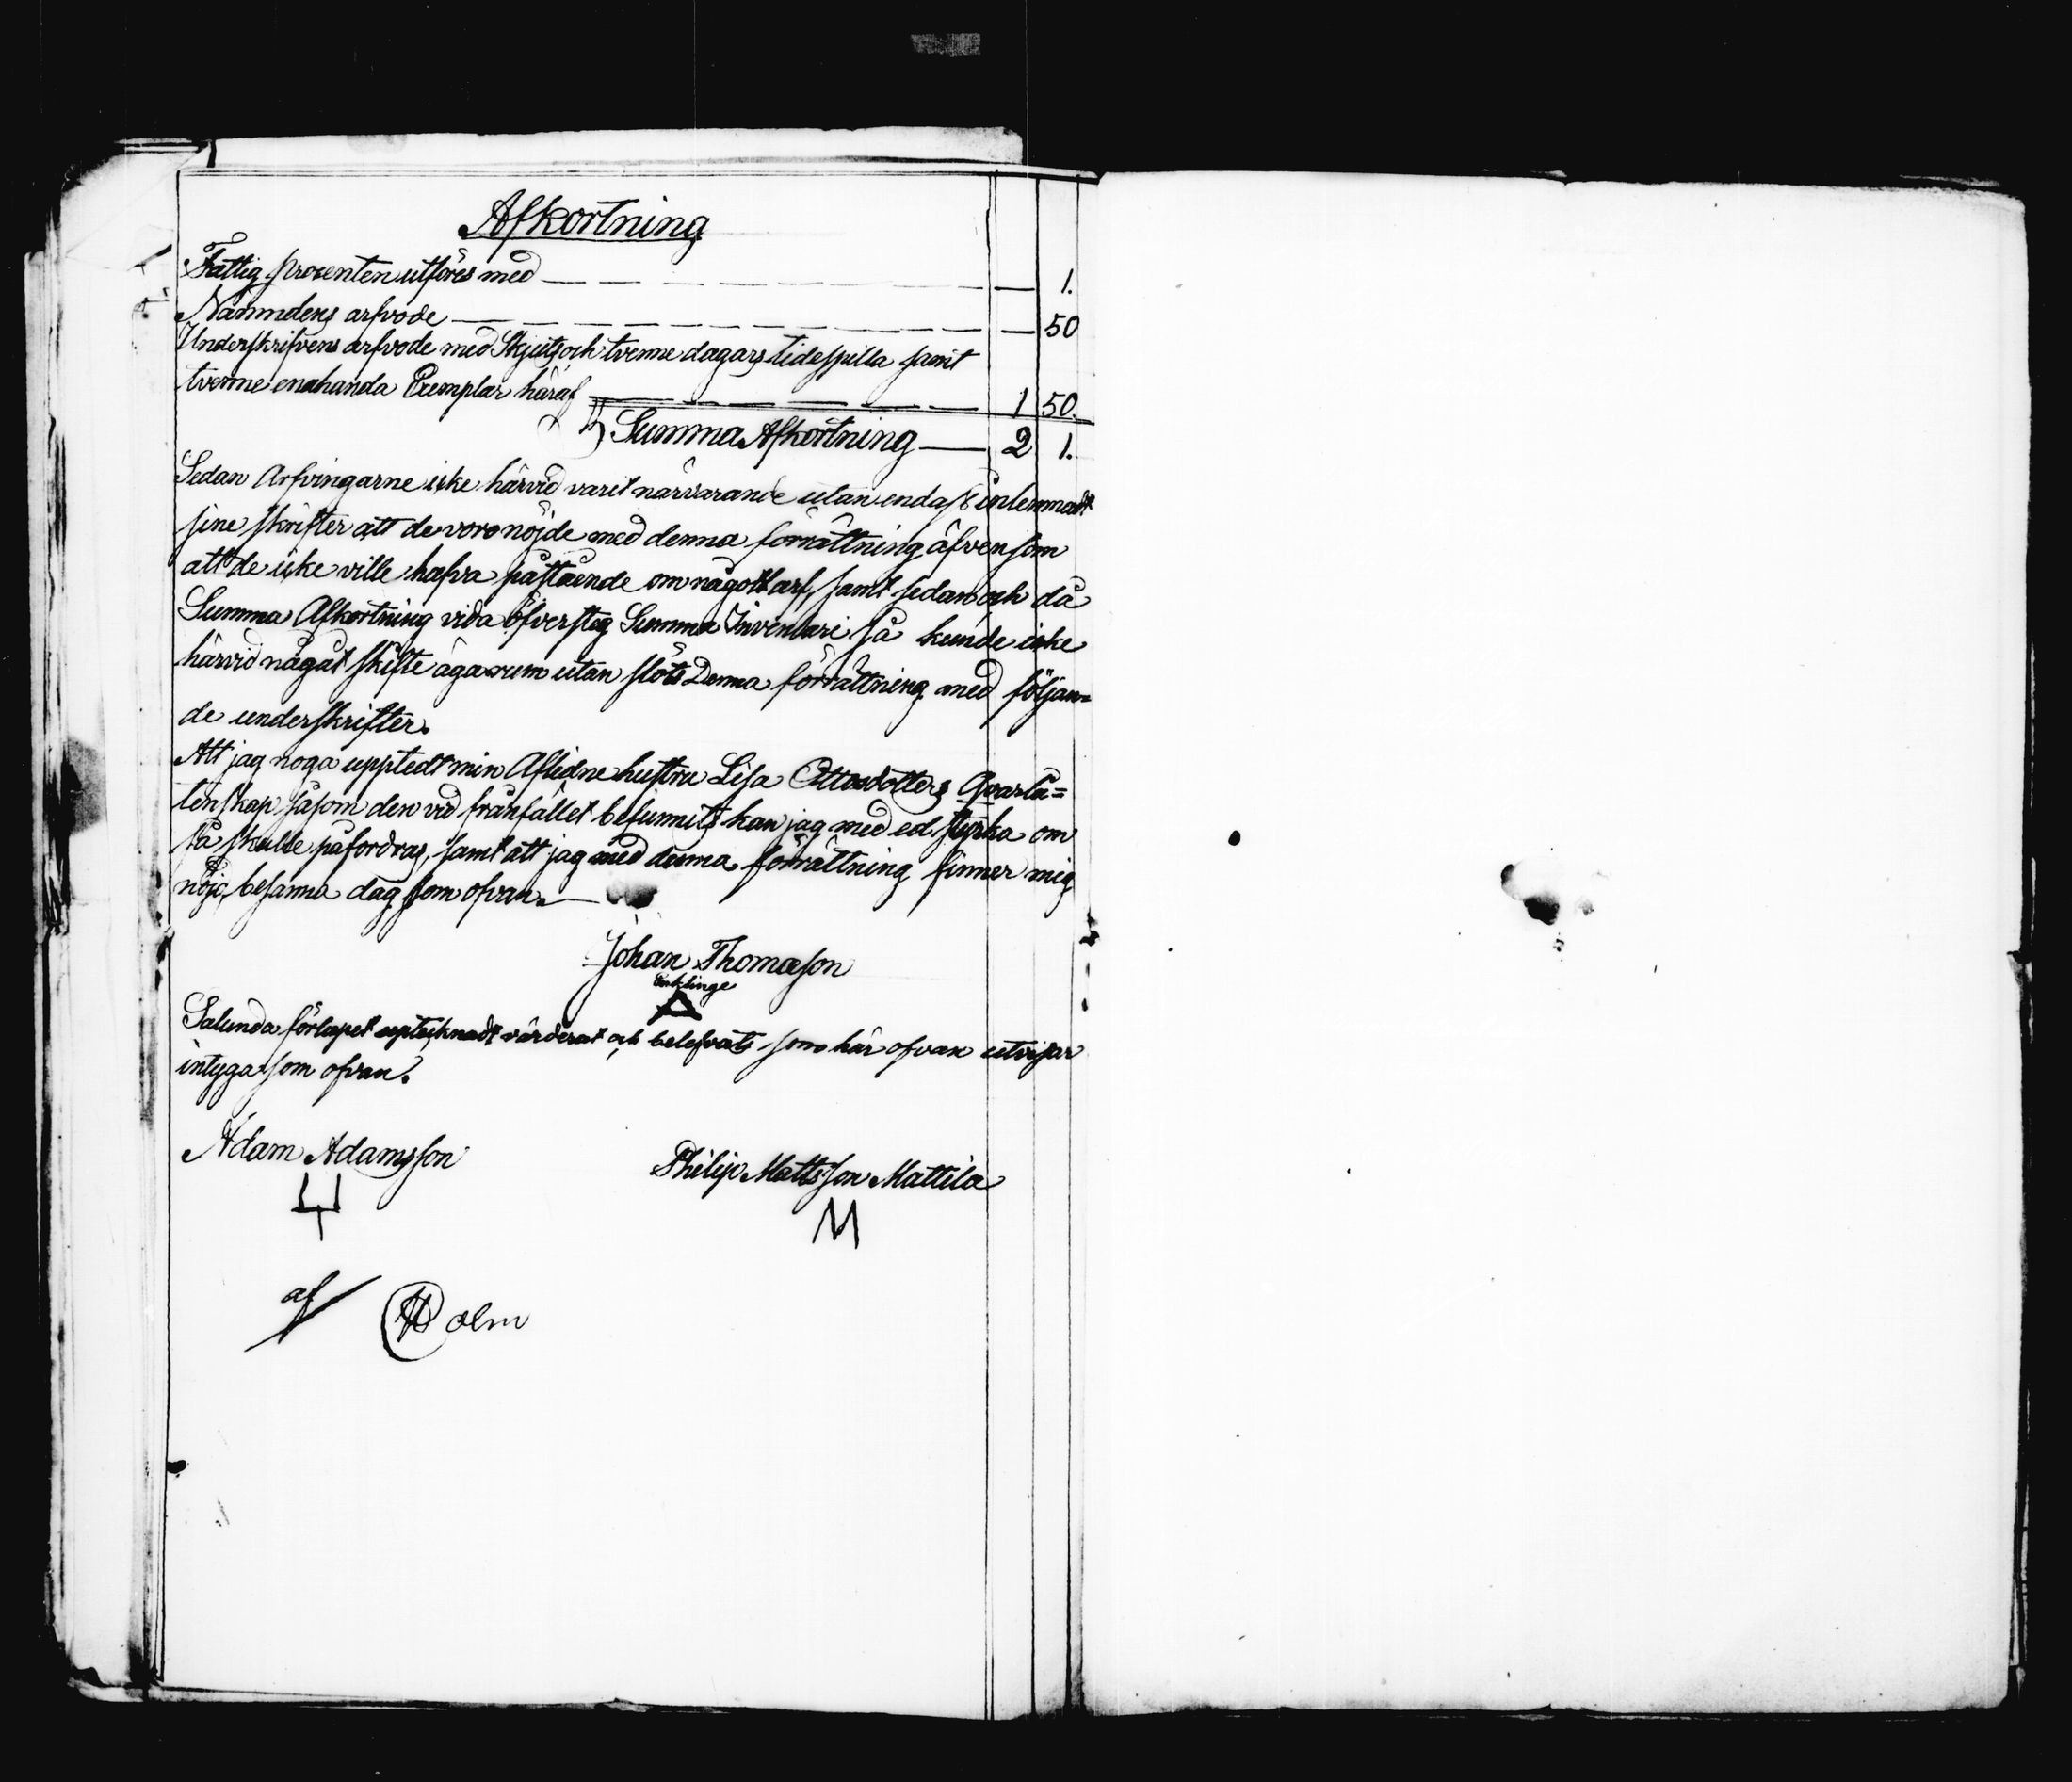 Afkortning
Fattig procenten utföres med — — — — — — — 1.
Nämndens arfvode — — — — — — — — — 50
Underskrifvens arfvode med Skjuts och tvenne dagars tidespilla samt
tvenne enahanda Exemplar häraf — — — — — 1 50.
Summa Afkortning — 2 1.
Sedan Arfvingarne icke härvid varit närvarande utan endast inlemnadt
sine skrifter att de voro nöjde med denna förrättning äfvensom
att de icke ville hafva påstående om någott arf, samt sedan och då
Summa Afkortning vida öfversteg Summa Inventari så kunde icke
härvid någåt skifte äga rum utan slöts Denna förrättning med följan=
de underskrifter.
Att jag noga upptedt min Aflidne hustru Lisa Ottosdotters Qvarlå=
tenskap såsom den vid frånfället befunnits kan jag med ed styrka om
så skulle påfordras, samt att jag med denna förrättning finner mig
nöjd, besanna dag som ofvan. —
Johan Thomasson
Enklinge
Salunda förlupet uptecknadt värderat och befvats som här ofvan utvisar
intyga som ofvan.
Adam Adamsson Philip Mattsson Mattila
M
af Holm